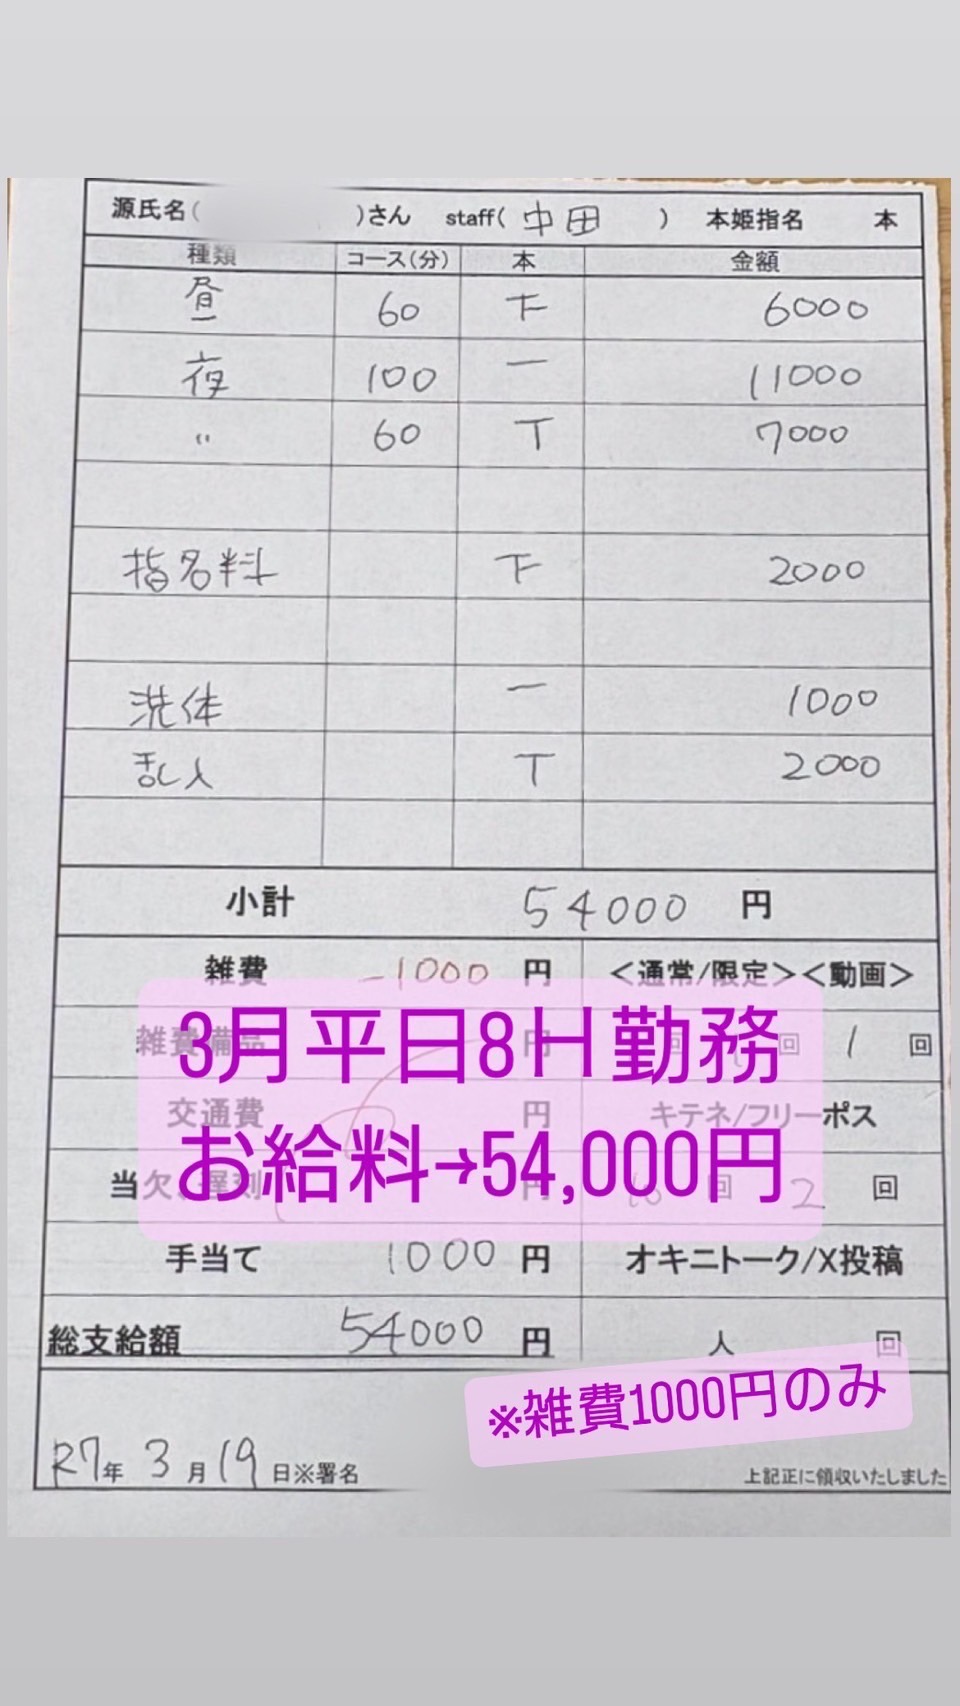 源氏名(　　　)さん　staff(中田　)　本姫指名　本
種類　コース(分)　本　金額
昼　60　下　6000
夜　100　一　11000
〃　60　T　7000
指名料　下　2000
洗体　一　1000
乱入　T　2000
小計　54000　円
雑費　-1000　円　＜通常/限定＞＜動画＞
雑費備品　円　回　回　1　回
3月平日8H勤務
交通費　円　キテネ/フリーポス
お給料→54,000円
当欠、遅刻　円　回　2　回
手当て　1000　円　オキニトーク/X投稿
総支給額　54000　円　人　回
※雑費1000円のみ
R7年　3月　19日※署名　上記正に領収いたしました